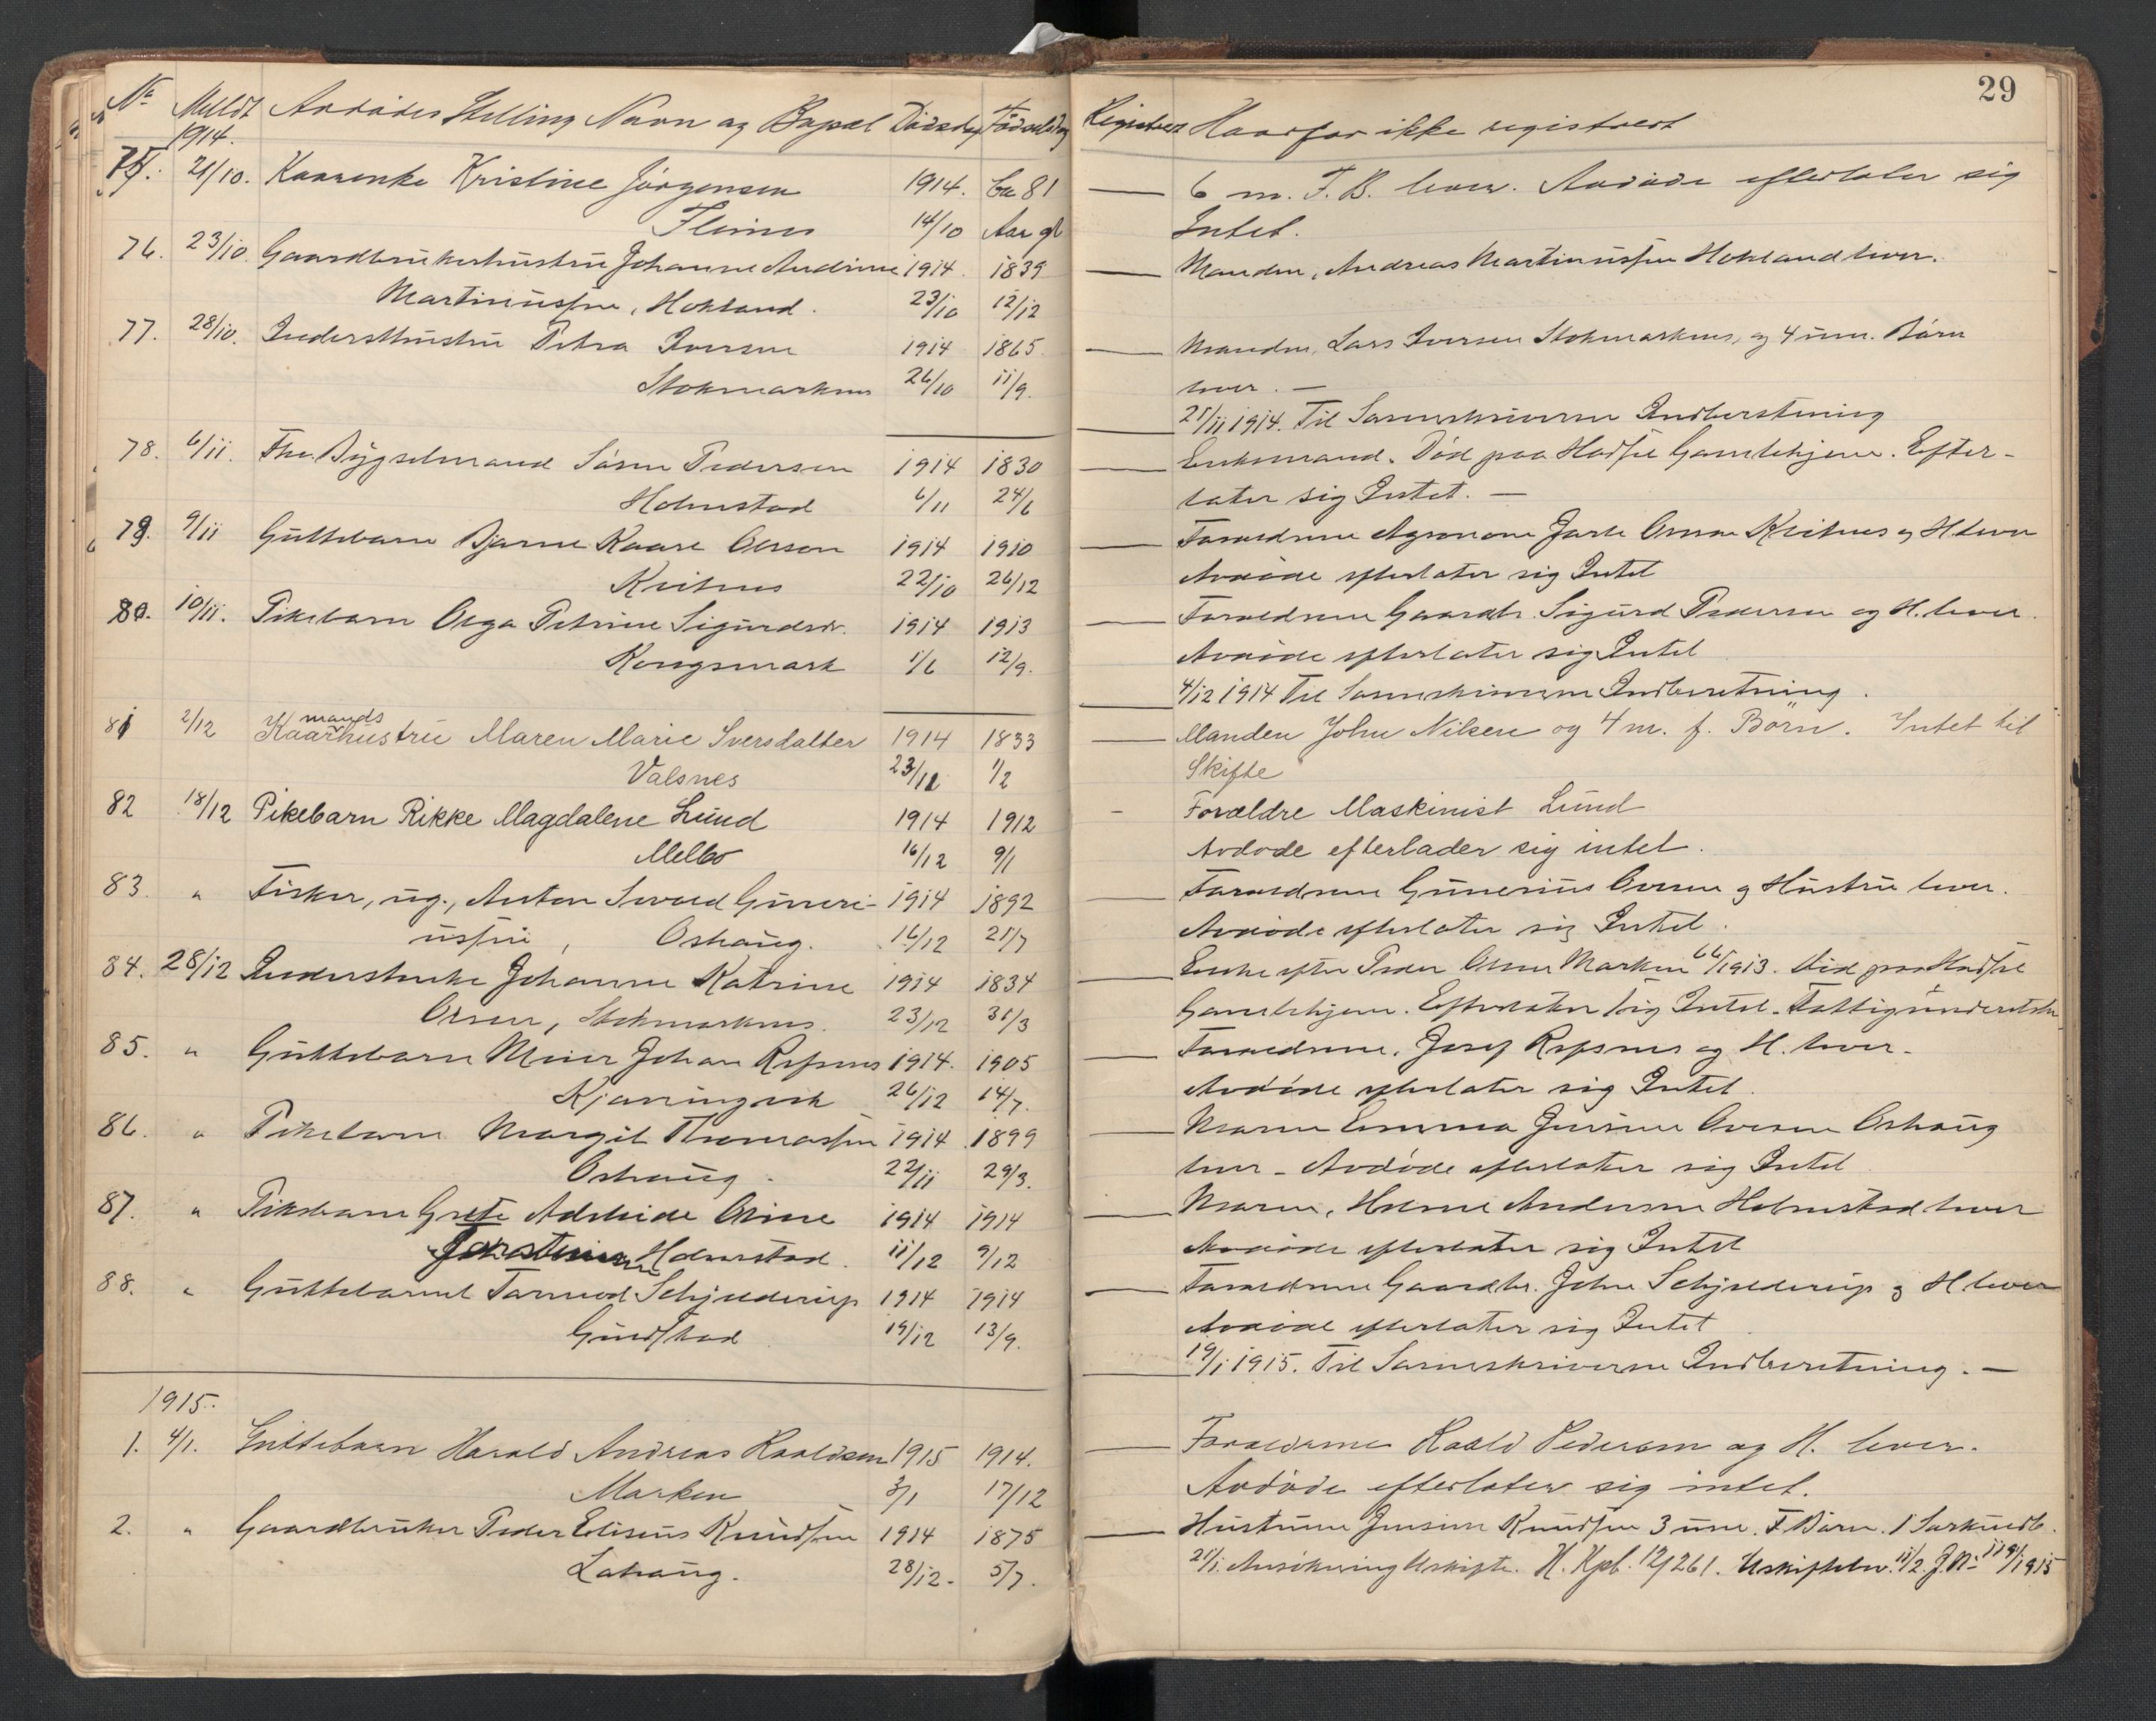 29
No Meldt Avdødes Stilling Navn og Bopæl Dødsdag Fødselsdag Registrert Hvorfor ikke registrert
1914.
75. 21/10. Kaarenke Kristine Jørgensen 1914. Ca 81 — 6 m. F. B. lever. Avdøde efterlater sig
Flesnes 14/10 Aar gl Intet.
76. 23/10. Gaardbrukerhustru Johanne Andrine 1914. 1839 — Manden, Andreas Martinussen Hokland lever.
Martinussen, Hokland. 23/10 12/12
77. 28/10. Indersthustru Petra Iversen 1914 1865. — Manden, Lars Iversen Stokmarknes, og 4 um. Børn
Stokmarknes 26/10 11/9. lever. —
— 25/11 1914. Til Sorenskriveren Indberetning
78. 6/11. Fhv. Bygselmand Søren Pedersen 1914 1830 — Enkemand. Død paa Hadsel Gamlehjem. Efter-
Holmstad 6/11 24/6 later sig Intet. —
79. 9/11 Guttebarn Bjarne Kaare Olsson 1914 1910 — Forældrene Agronom Jarle Olsson Kvitnes og H. lever
Kvitnes 22/10 26/12 Avdøde efterlater sig Intet
80. 10/11. Pikebarn Olga Petrine Sigurdsdr. 1914 1913 — Forældrene Gaardbr. Sigurd Pedersen og H. lever.
Kongsmark 1/6 12/9. Avdøde efterlater sig Intet
— 4/12 1914 Til Sorenskriveren Indberetning.
81 2/12 Kaarmandshustru Maren Marie Sversdatter 1914 1833 — Manden John Nilsen og 4 m. f. Børn. Intet til
Valsnes 23/11 1/2 Skifte
82 18/12 Pikebarn Rikke Magdalene Lund 1914 1912 - Forældre Maskinist Lund
Melbo 16/12 9/1 Avdøde efterlader sig intet.
83. " Fisker, ug., Anton Sevald Guneri- 1914 1892 — Forældrene Gunerius Olsen og Hustru lever.
ussen, Oshaug. 16/12 21/7 Avdøde efterlater sig Intet.
84. 28/12 Inderstenke Johanne Katrine 1914 1834 — Enke efter Peder Olsen Marken 1913. Død paa Hadsel
Olsen, Stokmarknes. 23/12 31/3 Gamlehjem. Efterlater sig Intet. Fattigunderstøttet
85. " Guttebarn Meier Johan Refsnes 1914. 1905 — Forældrene, Josef Refsnes og H. lever.
Kjærringvik 26/12 14/7. Avdøde efterlater sig Intet.
86. " Pikebarn Margit Thomassen 1914 1899 — Moren Emma Jensine Olsen Oshaug
Oshaug. 22/11 29/3. lever - Avdøde efterlater sig Intet
87. " Pikebarn Grete Adelheide Oline 1914 1914 — Moren, Helene Andersen Holmstad lever
Torstensen Holmstad. 11/12 9/12 Avdøde efterlater sig Intet
88. " Guttebarnet Tormod Schjelderup 1914 1914 — Forældrene Gaardbr. John Schjelderup og H lever
Guldstad 19/12 13/9. Avdøde efterlater sig Intet
— 19/1 1915. Til Sorenskriveren Indberetning. —
1915.
1. 4/1. Guttebarn Harald Andreas Roaldsen 1915 1914. — Forældrene Roald Pedersen og H. lever.
Marken 3/1 17/12 Avdøde efterlater sig intet.
2. " Gaardbruker Peder Eliseus Knudsen 1914 1875 — Hustruen Jensine Knudsen 3 um. F Børn. 1 Særkuldb.
Lahaug. 28/12. 5/7. 21/1. Ansøkning Uskifte. H. Kpb. 12/261. Uskiftebev. 11/2. J. N: 1915